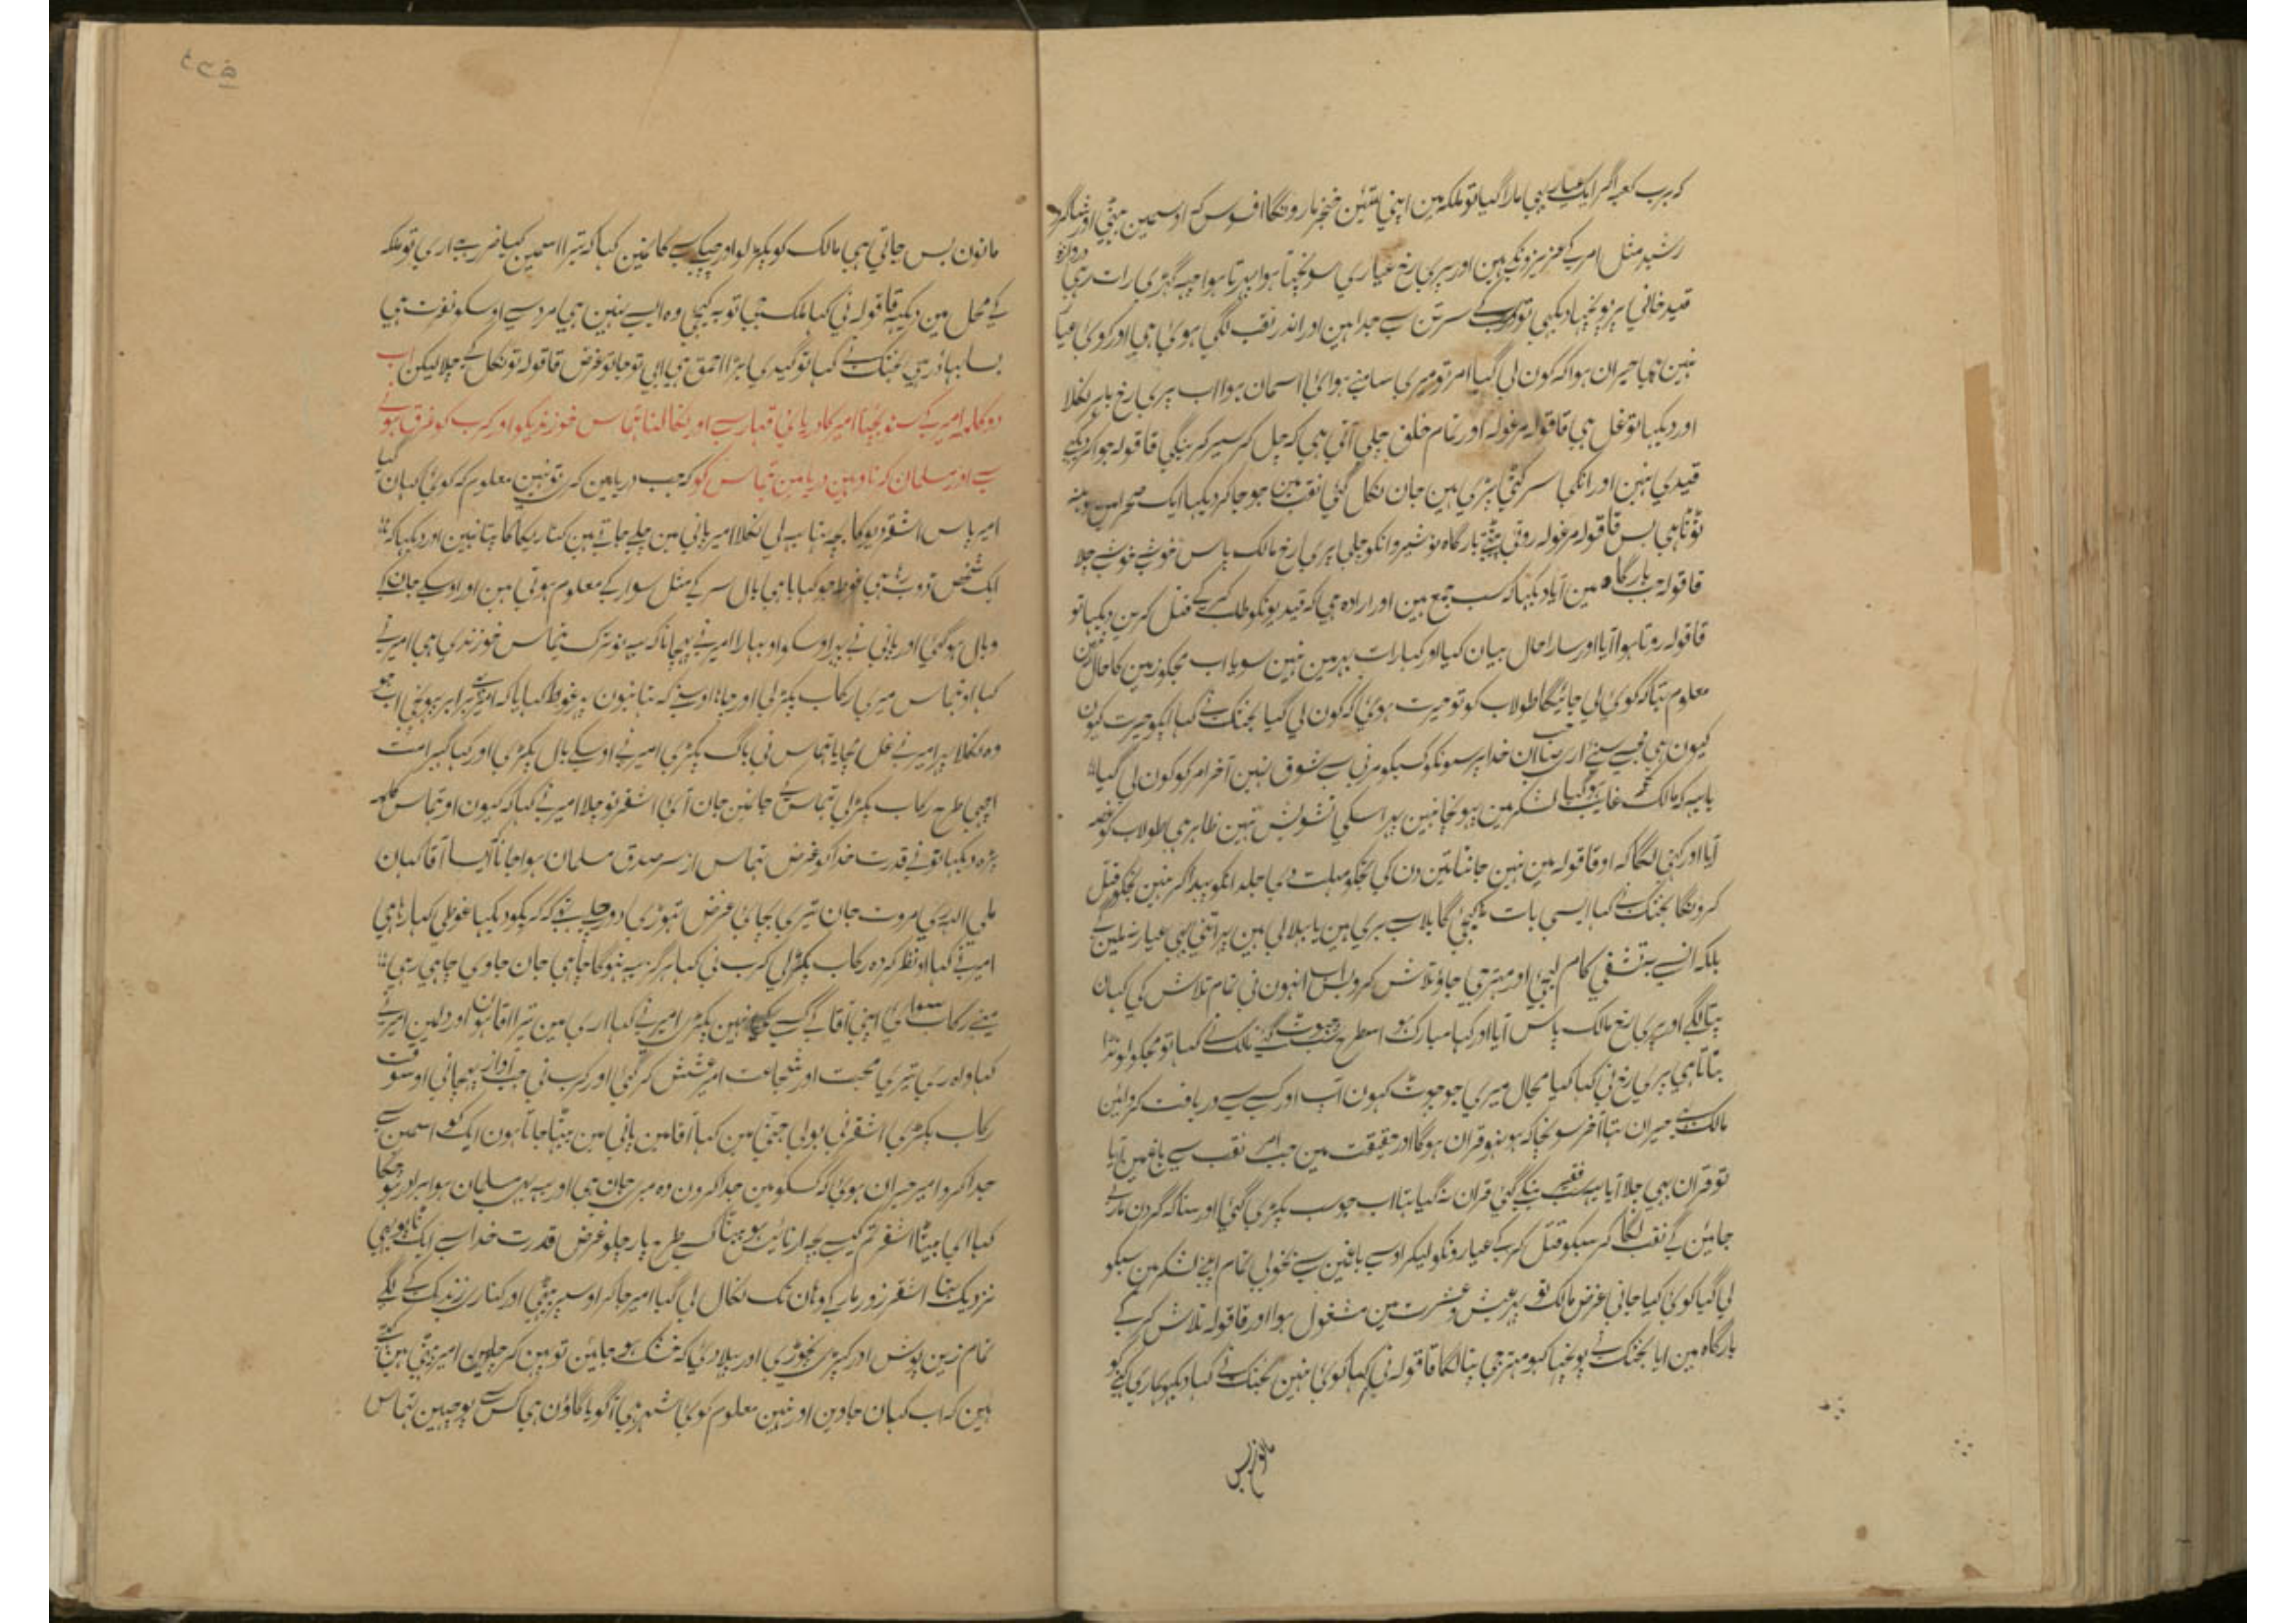 کہ برب کعبہ اگر ایک عیار بھی مارا گیا تو ملکہ مین اپنی تئین خنجر مارونگا افسوس کہ اوسمین مفتی اور شاگرد
رشید مثل امر کے عزیزونکے ہین اور پری رخ عیاری سونچتا ہوا پہرتا ہوا چھہ گہڑی رات رہی دروازہ
قید خانی پر پہونچا دیکھی تو سب کے سر تن سے جدا ہین اور اندر نقب لگی ہوئی ہی اور کوئی عیار
نہین حیران ہوا کہ کون لی گیا امر تو میری سامنے ہوائی اسمان ہوا اب پری رخ باہر نکلا
اور دیکھا تو غل ہی قاقولہ مرغولہ اور تمام خلق چلی آتی ہی کہ چل کر سیر کرینگی قاقولہ جو اکر دیکھے
قیدی نہین اور انکی سر کٹی پڑی ہین جان نکل گئی نقب مین جو جا کر دیکھا ایک صحرا مین
ٹوٹا ہی بس قاقولہ مرغولہ روتی پیٹتے بارگاہ نوشیروانکو چلی پری رخ مالک پاس خوشے خوشے چلا
قاقولہ جب بارگاہ مین آیا دیکھا کہ سب جمع ہین اور ارادہ ہی کہ قیدیونکو طلب کر کے قتل کرین دیکھا تو
قاقولہ روتا ہوا آیا اور سارا حال بیان کیا اور کہا رات بہر مین نہین سویا اب مجکو زمین کا حال نہین
معلوم تہا کہ کوئی لی جائیگا طولاب کو تو حیرت ہوئی کہ کون لی گیا بختک نے کہا ایکو حیرت کیون
کیون ہی مجسے سنئے اری صاحب ان خدا پرستونکو کسیکو مرنی سے شوق نہین آخر امر کو کون لی گیا
یا یہ کہ مالک غایب ہو گیا لشکر مین پہونچا نہین پہر اسکی تشویش نہین ظاہر ہی طولاب کو غصہ
آیا اور کہنی لگا کہ او قاقولہ مین نہین جانتا تین دن کی تجکو مہلت دی جلد انکو پیدا کر نہین تجکو قتل
کرونگا بختک نے کہا ایسی بات نہ کیجئی گا بلا سے بری ہین یا بہلا لی ہین پر اتنی بہی عیار نہ ملین گے
بلکہ انسے بتشفی کام لیجئی اور مہتر جی جاؤ تلاش کرو بس اب انہون نی تمام تلاش کی کہان
پتا لگے اور پری رخ مالک پاس آیا اور کہا مبارک ہو اسطرح سب چھوٹ گئے مالک نے کہا تو مجکو لونڈا
بتاتا ہی پری رخ نی کہا کیا مجال میری جو جھوٹ کہون آپ اور کسے سے دریافت کر لین
مالک حیران تہا آخر سونچا کہ ہو نہو قران ہوگا اور حقیقت مین جب امر نقب سے باغ مین آیا
تو قران بہی چلا آیا سب نکے گئی قران نہ گیا تہا اب جو سب پکڑی گئی اور سنا کہ گردن مارے
جائین گے نقب لگا کر سبکو قتل کر کے عیارونکو لیکر اوسے باغ مین سے بخوبی تمام اپنے لشکر مین سبکو
لی گیا کوئی کیا جانی غرض مالک تو پہر عیش و عشرت مین مشغول ہوا اور قاقولہ تلاش کر کے
بارگاہ مین ایا بختک نے پوچھا کہو مہتر جی پتا لگا قاقولہ نی کہا کوئی نہین بختک نے کہا دیکھو ہماری کہنے کو
مانون بس
مانون بس جاتی ہی مالک کو پکڑ لو اور چپکے سے کان مین کہا کہ تیرا اسمین کیا ضرر ہے اری تو ملکہ
کے محل مین دیکھ قاقولہ نی کہا ملک جی توبہ کیجی وہ ایسے نہین ہی مرد سے اوسکو نفرت ہی
بسا بہادر ہی بختک نے کہا تو گیدی بڑا احمق ہی ابی تو جا تو غرض قاقولہ تو نکل کے چلا لیکن اب
دو کلمہ امیر کے سنو بچنا امیر کا دریائی قہار سے اور نکالنا تہماس خوزندیکو اور کرب کو غرق ہونے
سے اور مسلمان کرنا وہین دریا مین تہماس کو کہ جب دریا مین گری تو نہین معلوم کہ کوئی کہان گیا
امیر پاس اشقر دیو کا بچہ تہا یہ لی نکلا امیر پانی مین چلے جاتے ہین کناریکا کا پتا نہین اور دیکھا کہ
ایک شخص ڈوب رہا ہی غوطہ جو کہایا ہی بال سر کے مثل سوار کے معلوم ہوتی ہین اور اوسکے جان کے
وبال ہو گئی اور پانی نے پہر اوسکو اوبہارا امیر نے پہچانا کہ یہ تو ترک تہماس خوزندی ہی امیر نے
کہا او تہماس میری رکاب پکڑ لی اور جانا اوسنے کہ سنا نہون پہر غوطہ کہایا کہ امیر کے برابر پہونچی اب جو
وہ نکلا پہر امیر نے غل مچایا تہماس نی باگ پکڑی امیر نے اوسکے بال پکڑی اور کہا گہبرا مت
اچھی طرح رکاب پکڑ لی تہماس کے جان مین جان آئی اشقر تو چلا امیر نے کہا کہ کیون او تہماس کلمہ
پڑہ دیکھا تو نے قدرت خدا کو غرض تہماس از سر صدق مسلمان ہوا جانا کہ ایسا آقا کہان
ملی اللہ ری مروت جان تیری بچائی غرض تہوڑی دور چلے تھے کہ کرب کو دیکھا غوطی کہا رہا ہی
امیر نے کہا او نظر کردہ رکاب پکڑ لی کرب نی کہا ہرگز یہ نہوگا چاہی جان جاوی چاہی رہی
مینے رکاب سوای اپنی آقا کے کسیکی نہین پکڑی امیر نے کہا اری مین تیرا آقا ہون اور دلمین امیر نے
کہا واہ ری تیری محبت اور شجاعت امیر عش عش کر گئی اور کرب نی جب آواز پہچانی اوسوقت
رکاب پکڑی اشقر نی بولی جنی مین کہا آقا مین پانی مین بیٹھا جاتا ہون ایک کو اسمین سے
جدا کرو امیر حیران ہوئی کہ کسکو مین جدا کرون وہ میری جان ہی اور یہ بہی مسلمان ہوا برادر ہو چکا
کہا ای بیٹا اشقر تم کیسے بچہ ارنائیس ہو بیٹا کسے طرح پار چلو غرض قدرت خدا سے ایک ٹاپو بہی
نزدیک تہا اشقر زور مار کے وہان تک نکال لی گیا امیر جا کر اوسپر بیٹھی اور کناری زندگے کے لگے
تمام زین پوش اور کپڑی نچوڑی اور پہیلا دئی کہ خشک ہو جائین تو پہن کر چلین امیر بیٹھی ہین
ہین کہ اب کہان جاوین اور نہین معلوم کوئی شہر ہی آگو یا گاؤن ہی کس سے پوچھین تہماس